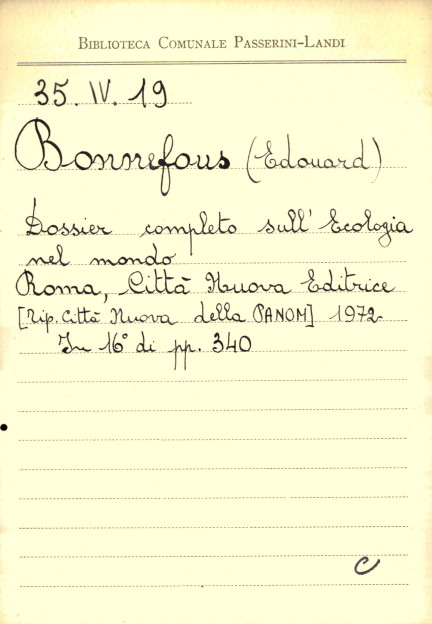 BIBLIOTECA COMUNALE PASSERINI-LANDI
35. IV. 19
Bonnefous (Edouard)
Dossier completo sull' Ecologia
nel mondo
Roma, Città Nuova Editrice
[Tip. Città Nuova della PANOM] 1972
In 16° di pp. 340
C